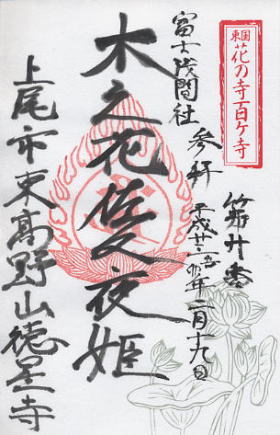 東国
花の寺百ヶ寺
第廿番
参拝
平成廿五年二月十九日
富士浅間社
木之花佐久夜姫
上尾市東高野山徳星寺